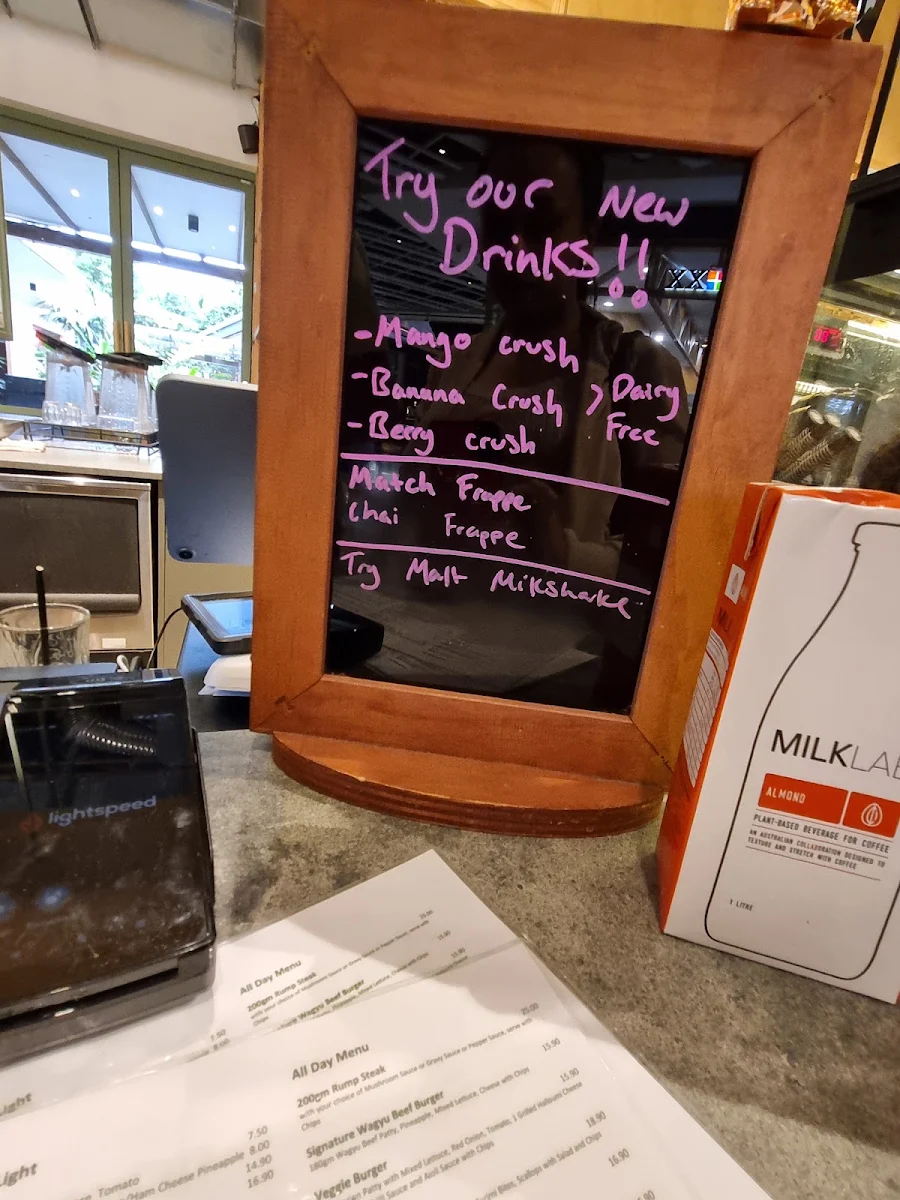 Try our New
Drinks!!
-Mango crush
-Banana Crush > Dairy
Free
-Berry crush
Match Frappe
Chai Frappe
Try Malt Milksharke
lightspeed
MILKLAB
ALMOND
PLANT-BASED BEVERAGE FOR COFFEE
AN AUSTRALIAN COLLABORATION DESIGNED TO
TEXTURE AND STRETCH WITH COFFEE
1 LITRE
All Day Menu
200gm Rump Steak
with your choice of Mushroom Sauce or Gravy Sauce or Pepper Sauce, serve with
Chips
Wagyu Beef Burger
Pineapple, Mixed Lettuce, Cheese with Chips
All Day Menu
200gm Rump Steak 25.00
with your choice of Mushroom Sauce or Gravy Sauce or Pepper Sauce, serve with
Chips
Signature Wagyu Beef Burger 15.90
180gm Wagyu Beef Patty, Pineapple, Mixed Lettuce, Cheese with Chips
Veggie Burger 15.90
Patty with Mixed Lettuce, Red Onion, Tomato, Grilled Halloumi Cheese
Sauce and Aioli Sauce with Chips
18.90
Bites, Scallops with Salad and Chips
16.90
Light
7.50
8.00
Light
Tomato 7.50
/Ham Cheese Pineapple 8.00
14.90
16.90